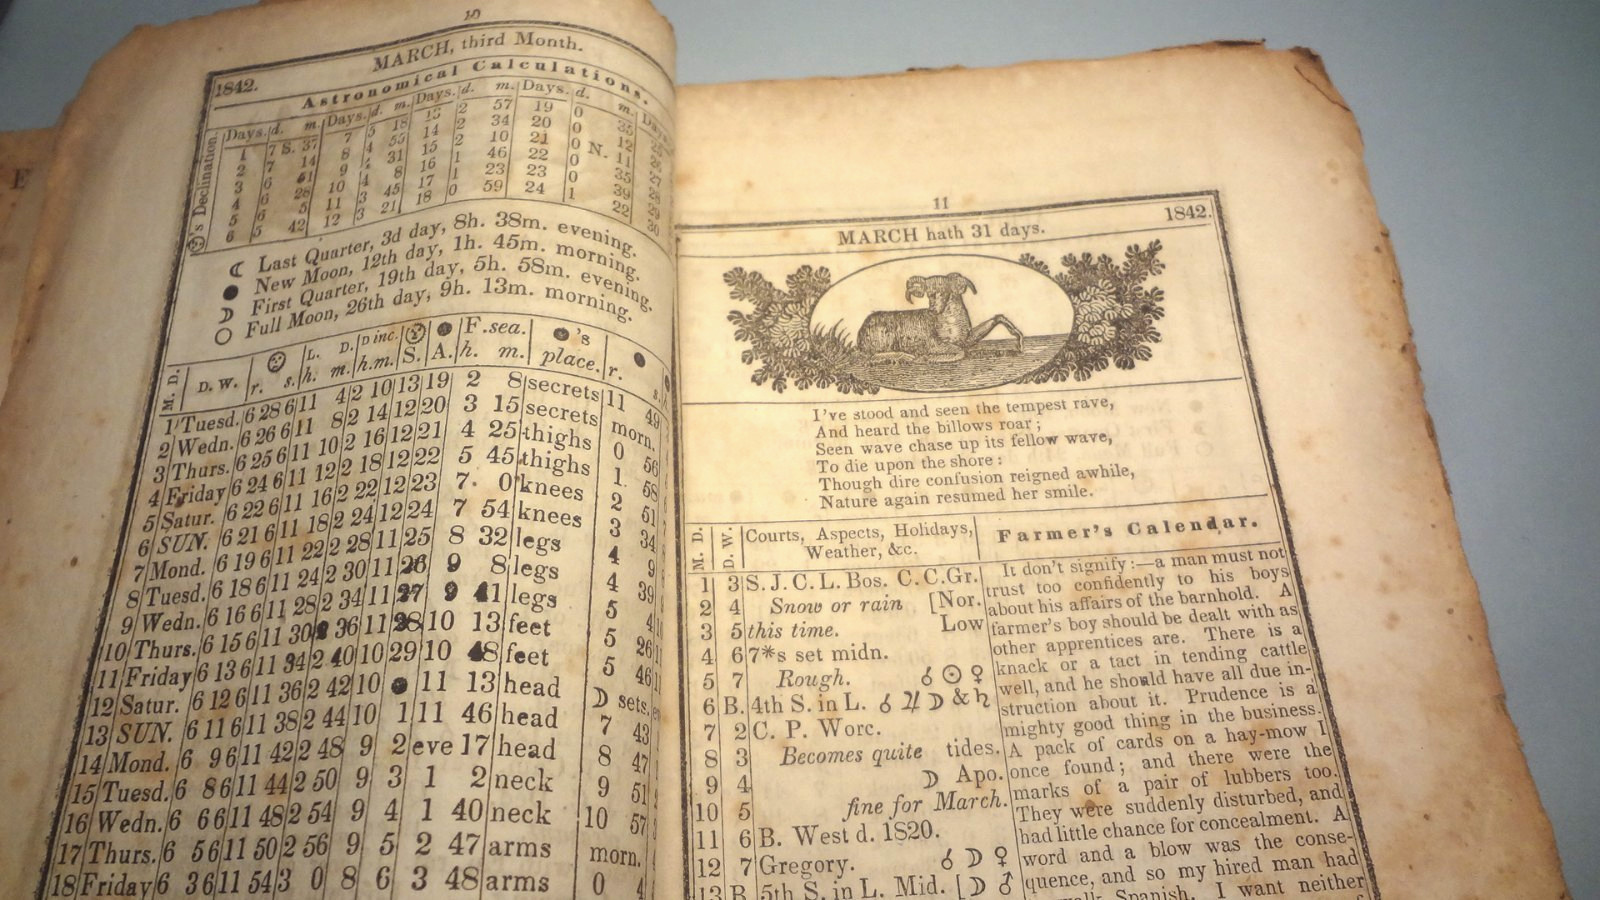 10
MARCH, third Month.
1842.
Astronomical Calculations.
Days. d. m. Days. d. m. Days. d. m. Days. d. m. Days
's Declination.
1 7 S. 37 7 5 18 13 2 57 19 0 35
2 7 14 8 4 55 14 2 34 20 0 12
3 6 51 9 4 31 15 2 10 21 0 N. 11
4 6 28 10 4 8 16 1 46 22 0 35
5 6 5 11 3 45 17 1 23 23 0
6 5 42 12 3 21 18 0 59 24 1 22
☾ Last Quarter, 3d day, 8h. 38m. evening.
● New Moon, 12th day, 1h. 45m. morning.
☽ First Quarter, 19th day, 5h. 58m. evening.
○ Full Moon, 26th day, 9h. 13m. morning.
M. D. D. W. r. s. L. D. h. m. D inc. h. m. S. A. F. sea. h. m. 's place. r. s.
1 Tuesd. 6 28 6 11 4 2 10 13 19 2 8 secrets 11 49
2 Wedn. 6 26 6 11 8 2 14 12 20 3 15 secrets morn.
3 Thurs. 6 25 6 11 10 2 16 12 21 4 25 thighs 0 56
4 Friday 6 24 6 11 12 2 18 12 22 5 45 thighs 1 58
5 Satur. 6 22 6 11 16 2 22 12 23 7 0 knees 2 51
6 SUN. 6 21 6 11 18 2 24 12 24 7 54 knees 3 34
7 Mond. 6 19 6 11 22 2 28 11 25 8 32 legs 4 9
8 Tuesd. 6 18 6 11 24 2 30 11 26 9 8 legs 4 39
9 Wedn. 6 16 6 11 28 2 34 11 27 9 41 legs 5 4
10 Thurs. 6 15 6 11 30 2 36 11 28 10 13 feet 5 26
11 Friday 6 13 6 11 34 2 40 10 29 10 48 feet 5 46
12 Satur. 6 12 6 11 36 2 42 10 ● 11 13 head ☽ sets.
13 SUN. 6 11 6 11 38 2 44 10 1 11 46 head 7 43
14 Mond. 6 9 6 11 42 2 48 9 2 eve 17 head 8 47
15 Tuesd. 6 8 6 11 44 2 50 9 3 1 2 neck 9 51
16 Wedn. 6 6 6 11 48 2 54 9 4 1 40 neck 10 57
17 Thurs. 6 5 6 11 50 2 56 9 5 2 47 arms morn.
18 Friday 6 3 6 11 54 3 0 8 6 3 48 arms 0 4
11
MARCH hath 31 days.
1842.
I've stood and seen the tempest rave,
And heard the billows roar;
Seen wave chase up its fellow wave,
To die upon the shore:
Though dire confusion reigned awhile,
Nature again resumed her smile.
M. D. D. W. Courts, Aspects, Holidays,
Weather, &c.
1 3 S. J. C. L. Bos. C. C. Gr.
2 4 Snow or rain [Nor.
3 5 this time. Low
4 6 7*s set midn.
5 7 Rough. ☌ ☉ ♀
6 B. 4th S. in L. ☌ ♃ ☽ & ♄
7 2 C. P. Worc.
8 3 Becomes quite tides.
9 4 ☽ Apo.
10 5 fine for March.
11 6 B. West d. 1820.
12 7 Gregory. ☌ ☽ ♀
13 B 5th S. in L. Mid. [☽ ♂
Farmer's Calendar.
It don't signify:—a man must not
trust too confidently to his boys
about his affairs of the barnhold. A
farmer's boy should be dealt with as
other apprentices are. There is a
knack or a tact in tending cattle
well, and he should have all due in-
struction about it. Prudence is a
mighty good thing in the business.
A pack of cards on a hay-mow I
once found; and there were the
marks of a pair of lubbers too.
They were suddenly disturbed, and
had little chance for concealment. A
word and a blow was the conse-
quence, and so my hired man had
walk Spanish. I want neither